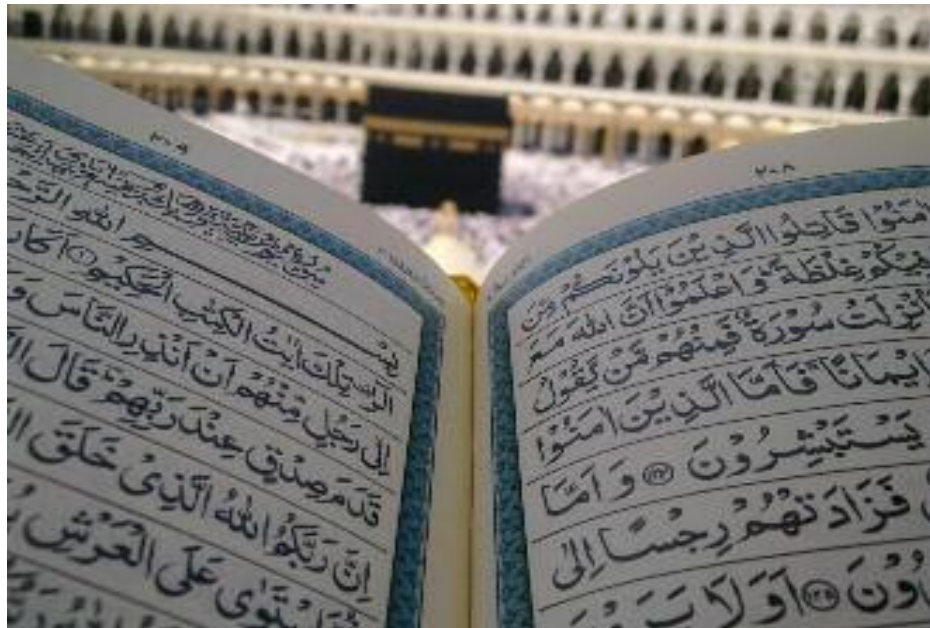 ٢٠٨
اٰمَنُوْا قَاتِلُوا الَّذِيْنَ يَلُوْنَكُمْ مِّنَ
فِيْكُمْ غِلْظَةً ؕ وَ اعْلَمُوْۤا اَنَّ اللّٰهَ مَعَ
اُنْزِلَتْ سُوْرَةٌ فَمِنْهُمْ مَّنْ يَّقُوْلُ
اِيْمَانًا ۚ فَاَمَّا الَّذِيْنَ اٰمَنُوْا
يَسْتَبْشِرُوْنَ ﴿۱۲۴﴾ وَ اَمَّا
فَزَادَتْهُمْ رِجْسًا اِلٰى
﴿۱۲۵﴾ اَوَ لَا يَرَوْنَ
٢٠٩
بِسْمِ اللّٰهِ
الٓرٰ ۫ تِلْكَ اٰيٰتُ الْكِتٰبِ الْحَكِيْمِ ﴿۱﴾ اَكَانَ
اِلٰى رَجُلٍ مِّنْهُمْ اَنْ اَنْذِرِ النَّاسَ وَ
قَدَمَ صِدْقٍ عِنْدَ رَبِّهِمْ ؕ قَالَ
اِنَّ رَبَّكُمُ اللّٰهُ الَّذِيْ خَلَقَ
اسْتَوٰى عَلَى الْعَرْشِ